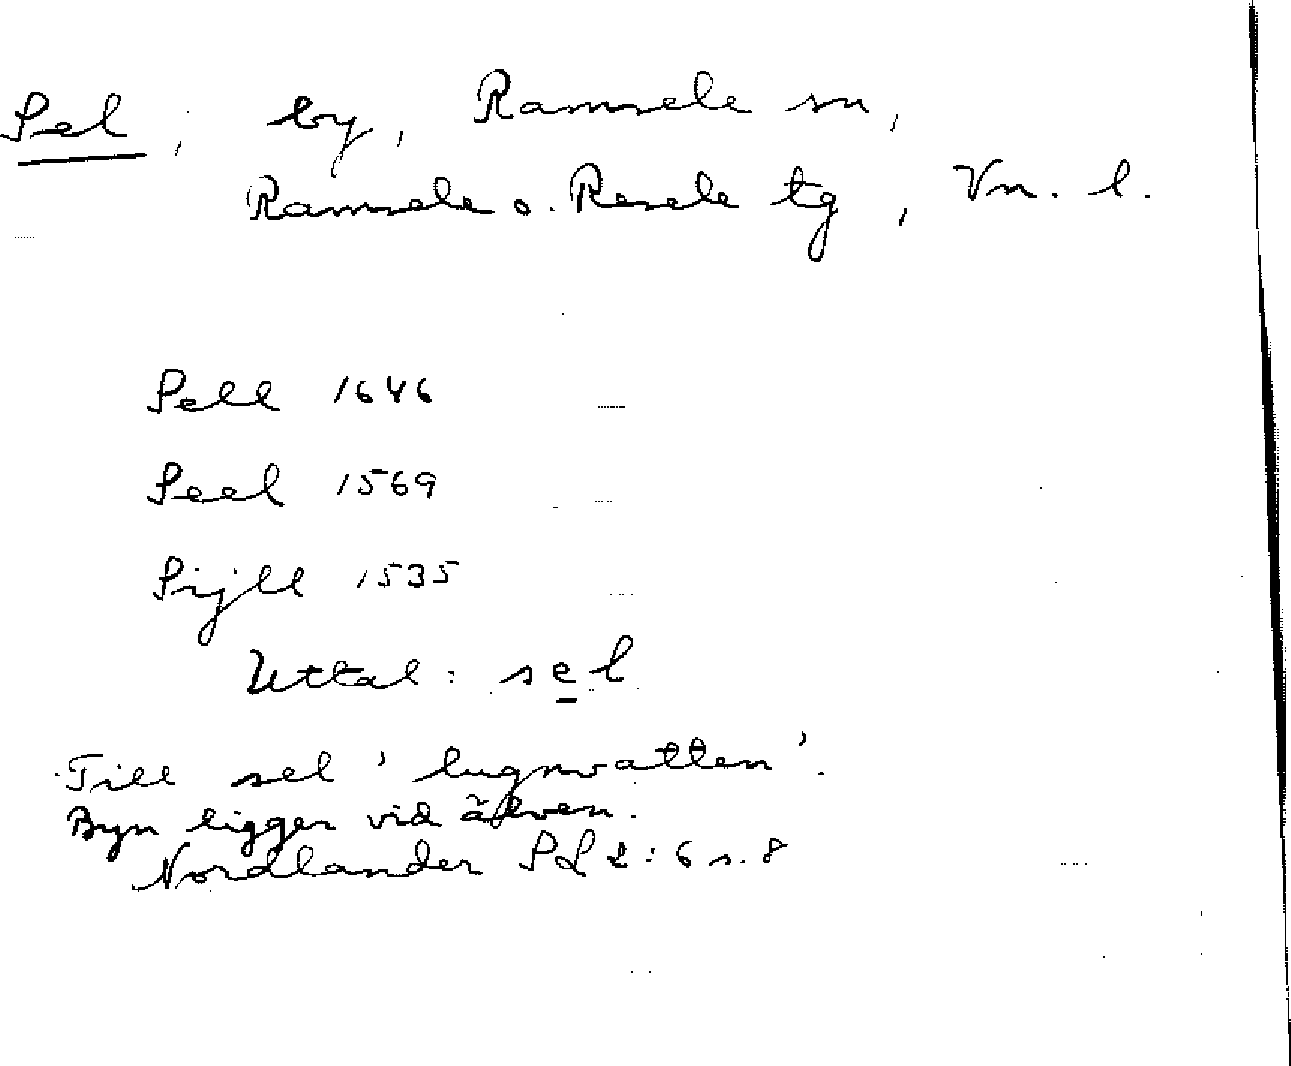 Sel, by, Ramsele sn,
Ramsele o. Resele tg, Vn. l.
Sell 1646
Seel 1569
Sijll 1535
Uttal: sel
Till sel 'lugnvatten'.
Byn ligger vid älven.
Nordlander SL 2:6 s. 8